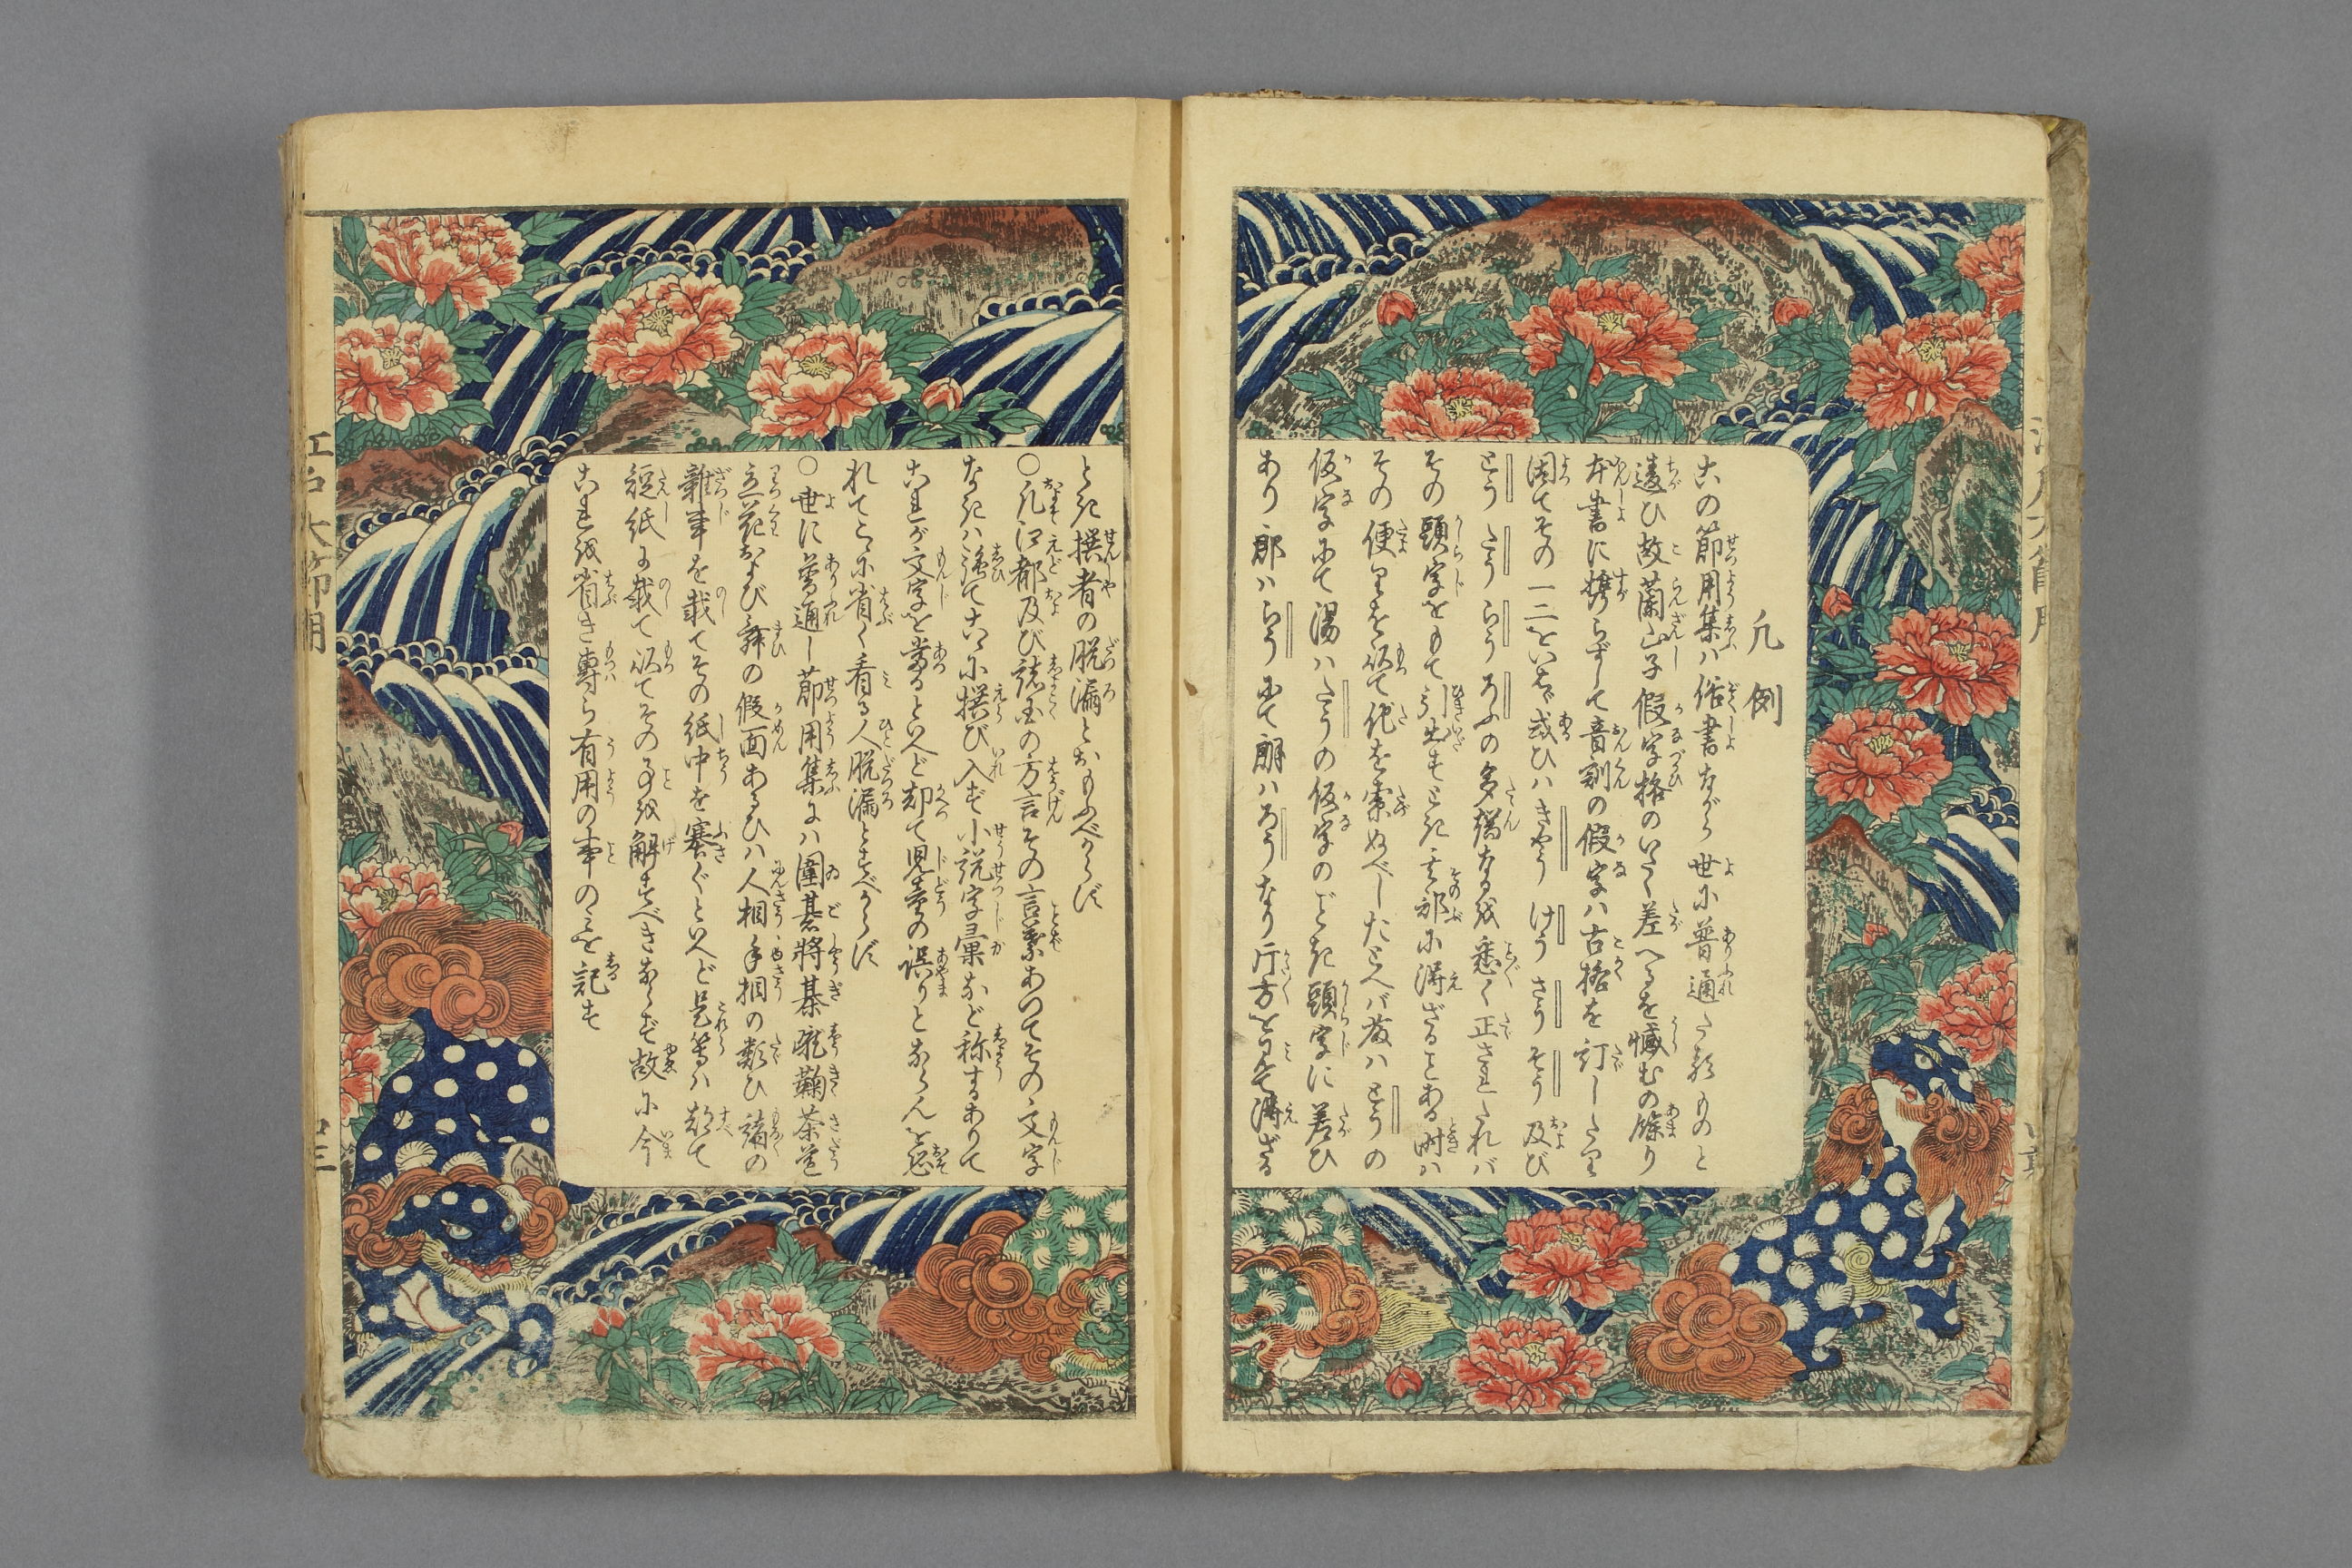 凡例
古の節用集ハ俗書ながら世に普通たる者ものと
違ひ故蘭山子假字格のいたく差へるを憾むの餘り
本書に携らずして音訓の假字ハ古格を訂したり
因てその一二をいはゞ或ひハきやうけうさうそう及び
とうたうらうろふの多端なるを悉く正されたれバ
その頭字をもて引出すとき其部に得ざることある時ハ
その便りを以て他を索ぬべしたとへバ藤ハとうの
仮字にて湯ハたうの仮字のごとき頭字に差ひ
あり郎ハらうにて朗ハろうなり片方を見て得ざる
とき撰者の脱漏とおもふべからず
○凡江都及び諸国の方言その言葉あつてその文字
なきハ強て古に撰び入ず小説字彙など称するありて
これが文字を当るといへど却て児童の誤りとならんを恐
れてこゝに省く看る人脱漏とすべからず
○世に普通し節用集にハ圍碁將棊蹴鞠茶道
立花および舞の假面あるひハ人相手相の類ひ諸の
雑事を載てその紙中を塞ぐといへど是等ハ都て
短紙に載て以てその事を解すべきならず故に今
これを省き専ら有用の事のミを記す
江戸大節用